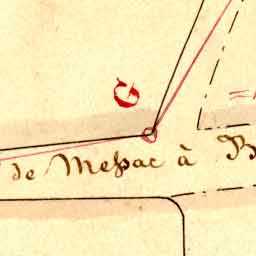 G
de Messac à B